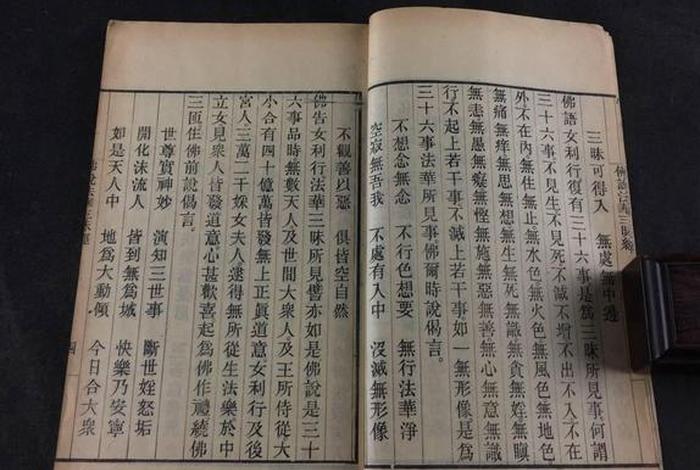 佛說法華三昧經
三昧可得入　無處無中邊
佛語女利行復有三十六事是爲三昧所見事何謂
三十六事不見生不見死不減不增不出不入不在
外不在內無住無止無水色無火色無風色無地色
無痛無痒無思無想無生無死無識無貪無婬無瞋
無恚無愚無癡無慳無施無惡無善無心無意無識
行不起上若干事不滅上若干事如一無形像是爲
三十六事法華所見事佛爾時說偈言
不想念無念　不行色想要　無行法華淨
空寂無吾我　不處有入中　沒滅無形像
不觀善以惡　俱皆空自然
佛告女利行法華三昧所見譬亦如是佛說是三十
六事品時無數天人及世間大衆人及王所侍從大
小合有四十億萬皆發無上正眞道意女利行及後
宮人三萬二千婇女夫人逮得無所從生法樂於中
立女見衆人皆發道意心甚歡喜起爲佛作禮繞佛
三匝住佛前說偈言
世尊實神妙　演知三世事　斷世婬怒垢
開化沫流人　皆到無爲城　快樂乃安寧
如是天人中　地爲大動傾　今日合大衆
佛說法華三昧經
四